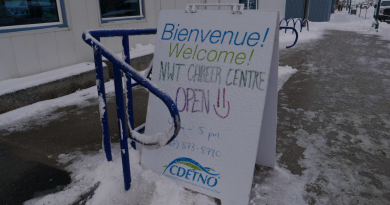 Bienvenue!
Welcome!
NWT CAREER CENTRE
OPEN
- 5 pm
873-5730
CDÉTNO